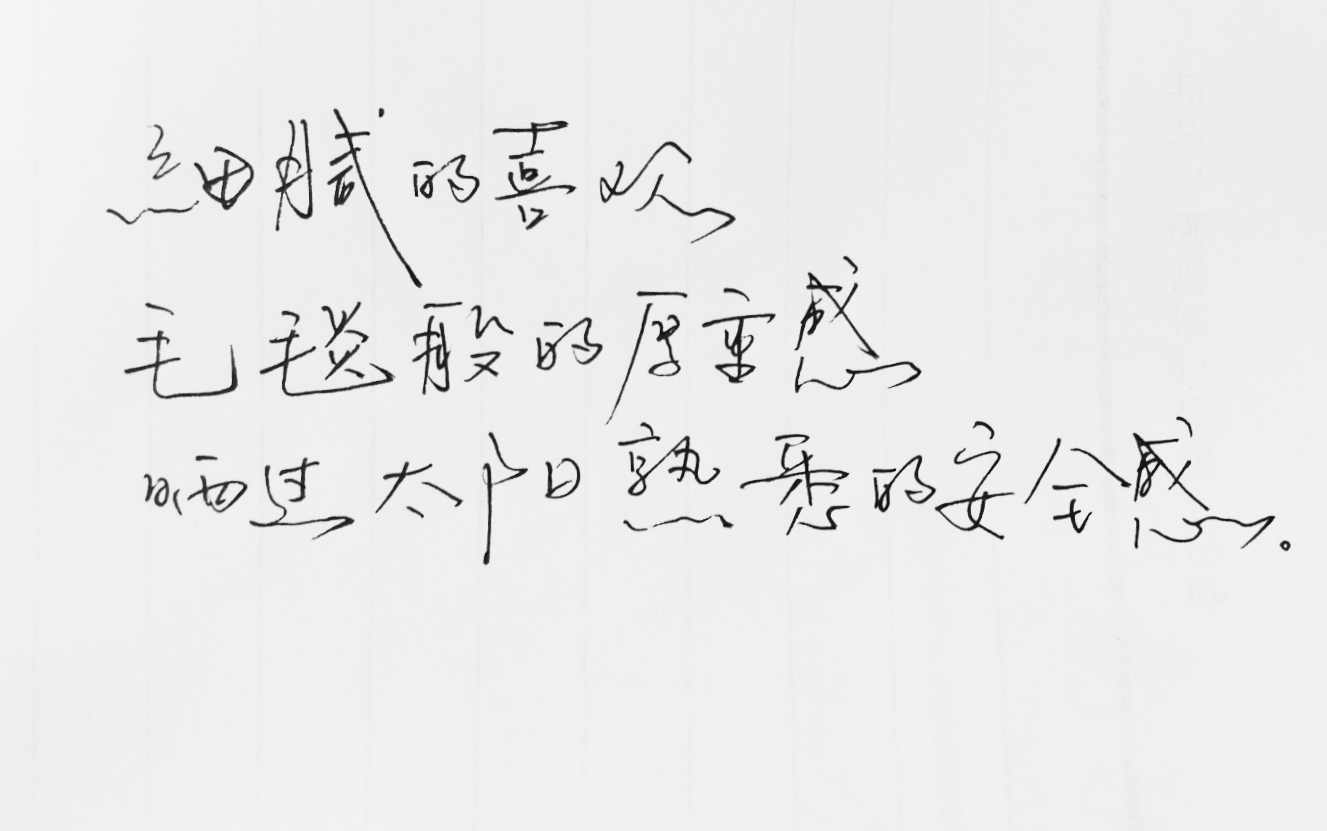 细腻的喜欢
毛毯般的厚重感
晒过太阳熟悉的安全感。